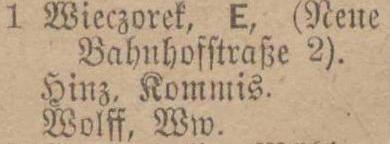 1 Wieczorek, E, (Neue
Bahnhofstraße 2).
Hinz, Kommis.
Wolff, Ww.